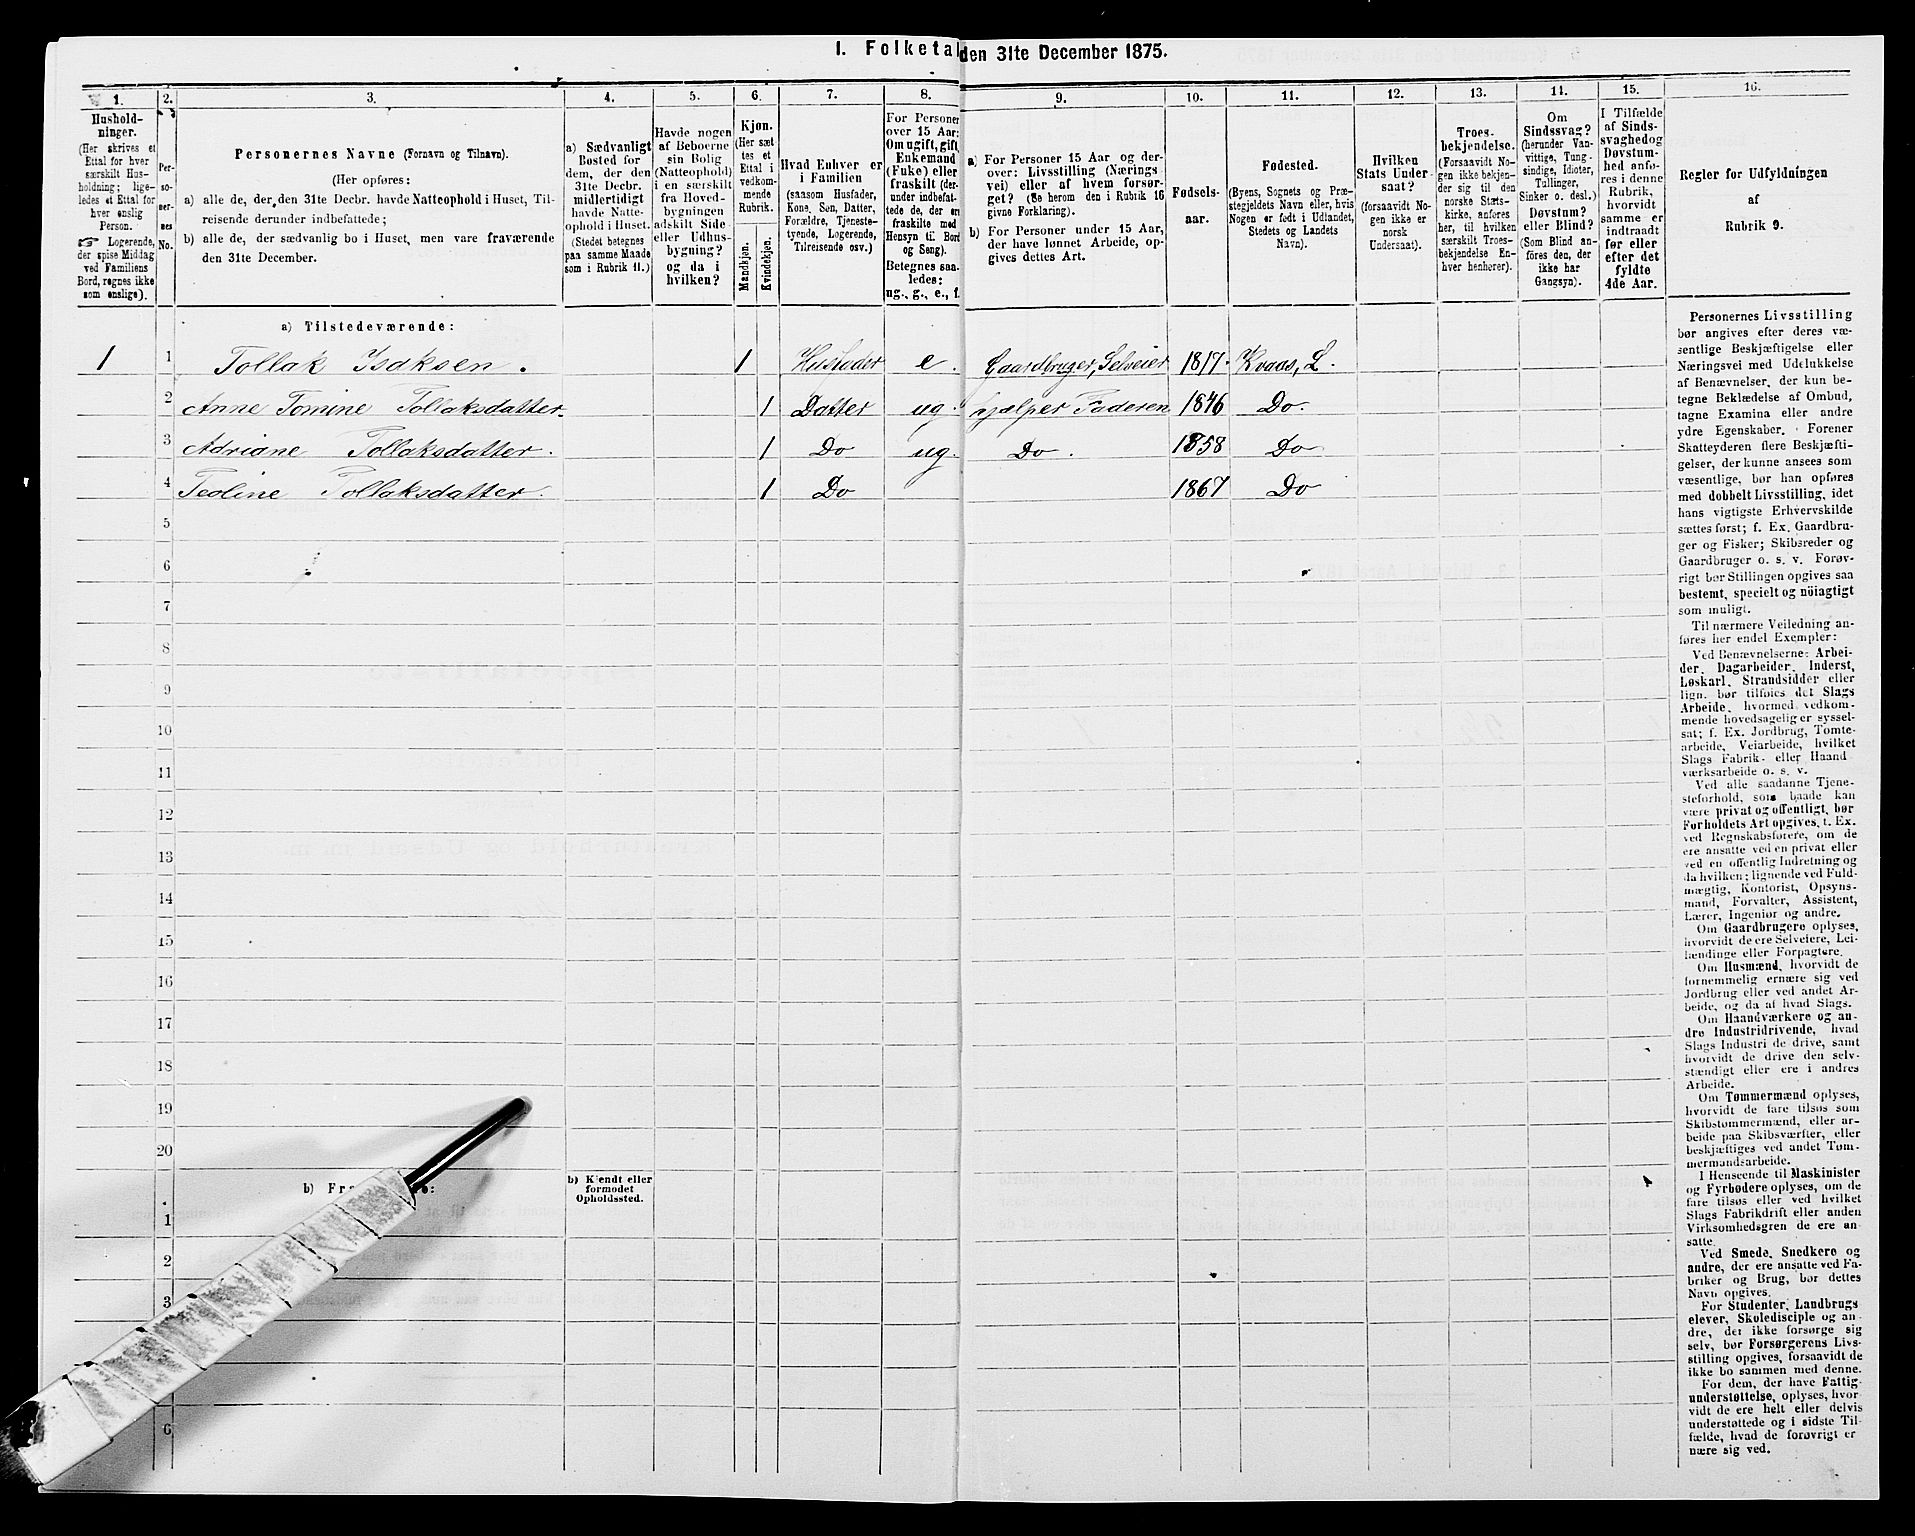 I. Folketal den 31te December 1875.
1.
Hushold-
ninger.
(Her skrives et
Ettal for hver
særskilt Hus-
holdning; lige-
ledes et Ettal for
hver enslig
Person.
☞ Logerende,
der spise Middag
ved Familiens
Bord, regnes ikke
som enslige).
2.
Per-
so-
ner-
nes
No.
3.
Personernes Navne (Fornavn og Tilnavn).
(Her opføres:
a) alle de, der den 31te Decbr. havde Natteophold i Huset, Til-
reisende derunder indbefattede;
b) alle de, der sædvanlig bo i Huset, men vare fraværende
den 31te December.
4.
a) Sædvanligt
Bosted for
dem, der den
31te Decbr.
midlertidigt
havde Natte-
ophold i Huset.
(Stedet betegnes
paa samme Maade
som i Rubrik 11.)
5.
Havde nogen
af Beboerne
sin Bolig
(Natteophold)
i en særskilt
fra Hoved-
bygningen
adskilt Side-
eller Udhus-
bygning?
og da i
hvilken?
6.
Kjøn.
(Her sæt-
tes et
Ettal i
vedkom-
mende
Rubrik.
Mandkjøn.
Kvindekjøn.
7.
Hvad Enhver er
i Familien
(saasom Husfader,
Kone, Søn, Datter,
Forældre, Tjeneste-
tyende, Logerende,
Tilreisende osv.)
8.
For Personer
over 15 Aar:
Om ugift, gift,
Enkemand
(Enke) eller
fraskilt (der-
under indbefat-
tede de, der ere
fraskilte med
Hensyn til Bord
og Seng).
Betegnes saa-
ledes:
ug., g., e., f.
9.
a) For Personer 15 Aar og der-
over: Livsstilling (Nærings-
vei) eller af hvem forsør-
get? (Se herom den i Rubrik 16
givne Forklaring).
b) For Personer under 15 Aar,
der have lønnet Arbeide, op-
gives dettes Art.
10.
Fødsels-
aar.
11.
Fødested.
(Byens, Sognets og Præ-
stegjeldets Navn eller, hvis
Nogen er født i Udlandet,
Stedets og Landets
Navn).
12.
Hvilken
Stats Under-
saat?
(forsaavidt No-
gen ikke er
norsk
Undersaat).
13.
Troes-
bekjendelse.
(Forsaavidt No-
gen ikke bekjen-
der sig til den
norske Stats-
kirke, anføres
her, til hvilken
særskilt Troes-
bekjendelse En-
hver henhører).
14.
Om
Sindssvag?
(herunder Van-
vittige, Tung-
sindige, Idioter,
Tullinger,
Sinker o. desl.)
Døvstum?
eller Blind?
(Som Blind an-
føres den, der
ikke har
Gangsyn).
15.
I Tilfælde
af Sinds-
svaghed og
Døvstum-
hed anfø-
res i denne
Rubrik,
hvorvidt
samme er
indtraadt
før eller
efter det
fyldte
4de Aar.
16.
Regler for Udfyldningen
af
Rubrik 9.
a) Tilstedeværende:
1 1 Tollak Isaksen. 1 Husfader e. Gaardbruger, Selveier 1817. Kvaas, L.
2 Anne Tomine Tollaksdatter. 1 Datter ug. hjælper Faderen 1846 Do.
3 Adriane Tollaksdatter. 1 Do ug. Do. 1858 Do
4 Teoline Tollaksdatter. 1 Do 1867 Do
5
6
7
8
9
10
11
12
13
14
15
16
17
18
19
20
b) Fra
b) Kjendt eller
formodet
Opholdssted.
1
2
3
6
Personernes Livsstilling
bør angives efter deres væ-
sentlige Beskjæftigelse eller
Næringsvei med Udelukkelse
af Benævnelser, der kun be-
tegne Beklædelse af Ombud,
tagne Examina eller andre
ydre Egenskaber. Forener
Skatteyderen flere Beskjæfti-
gelser, der kunne ansees som
væsentlige, bør han opføres
med dobbelt Livsstilling, idet
hans vigtigste Erhvervskilde
sættes først; f. Ex. Gaardbru-
ger og Fisker; Skibsreder og
Gaardbruger o. s. v. Forøv-
rigt bør Stillingen opgives saa
bestemt, specielt og nöiagtigt
som muligt.
Til nærmere Veiledning an-
føres her endel Exempler:
Ved Benævnelserne: Arbei-
der, Dagarbeider, Inderst,
Løskarl, Strandsidder eller
lign. bør tilføies det Slags
Arbeide, hvormed vedkom-
mende hovedsagelig er syssel-
sat; f. Ex. Jordbrug, Tomte-
arbeide, Veiarbeide, hvilket
Slags Fabrik- eller Haand-
værksarbeide o. s. v.
Ved alle saadanne Tjene-
steforhold, som baade kan
være privat og offentligt, bør
Forholdets Art opgives, f. Ex.
ved Regnskabsførere, om de
ere ansatte ved en privat eller
ved en offentlig Indretning og
da hvilken; lignende ved Fuld-
mægtig, Kontorist, Opsyns-
mand, Forvalter, Assistent,
Lærer, Ingeniør og andre.
Om Gaardbrugere oplyses,
hvorvidt de ere Selveiere, Lei-
lændinge eller Forpagtere.
Om Husmænd, hvorvidt de
fornemmelig ernære sig ved
Jordbrug eller ved andet Ar-
beide, og da af hvad Slags.
Om Haandværkere og an-
dre Industridrivende, hvad
Slags Industri de drive, samt
hvorvidt de drive den selv-
stændigt eller ere i andres
Arbeide.
Om Tømmermænd oplyses,
hvorvidt de fare tilsøs som
Skibstømmermænd, eller ar-
beide paa Skibsværfter, eller
beskjæftiges ved andet Tøm-
mermandsarbeide.
I Henseende til Maskinister
og Fyrbødere oplyses, om de
fare tilsøs eller ved hvilket
Slags Fabrikdrift eller anden
Virksomhedsgren de ere an-
satte.
Ved Smede, Snedkere og
andre, der ere ansatte ved Fa-
briker og Brug, bør dettes
Navn opgives.
For Studenter, Landbrugs-
elever, Skoledisciple og an-
dre, der ikke forsørge sig
selv, bør Forsørgerens Livs-
stilling opgives, forsaavidt de
ikke bo sammen med denne.
For dem, der have Fattig-
understøttelse, oplyses, hvor-
vidt de ere helt eller delvis
understøttede og i sidste Til-
fælde, hvad de forøvrigt er-
nære sig ved.